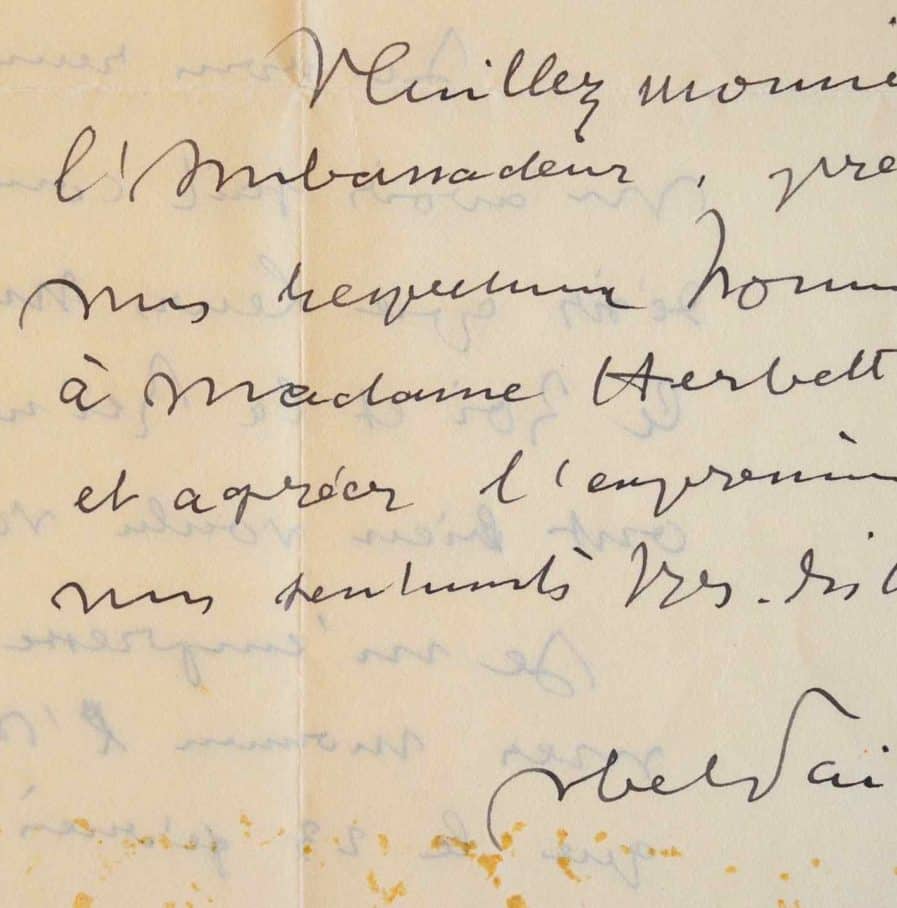 Veuillez monsie
l'Ambassadeur, pre
mes respectueux homm
à Madame Herbett
et agréer l'expression
mes sentiments très dist
Abel Fai